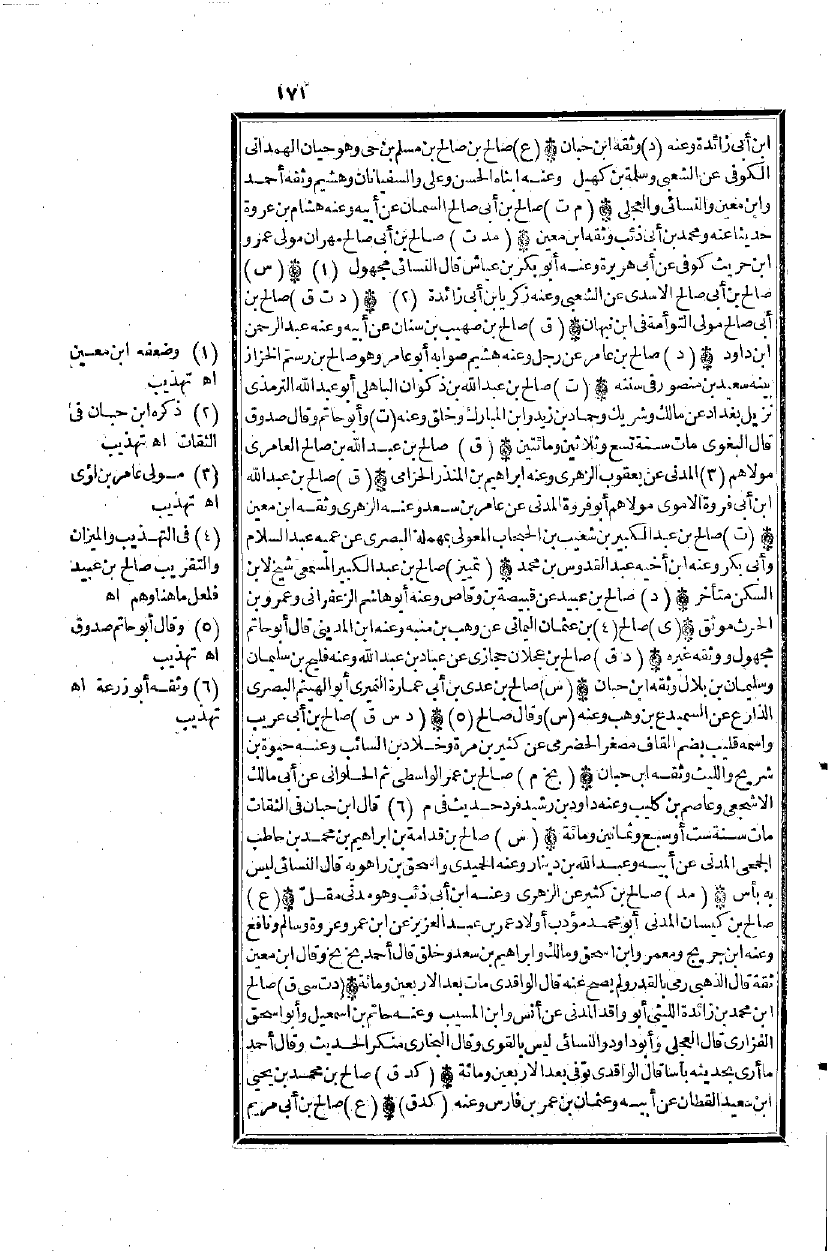 ١٧١
ابن أبى زائدة وعنه (د) وثقه ابن حبان ۞ (ع) صالح بن صالح بن مسلم بن حى وهو حيان الهمدانى
الكوفى عن الشعبى وسلمة بن كهيل وعنه ابناه الحسن وعلى والسفيانان وهشيم وثقه أحمد
وابن معين والنسائى والعجلى ۞ (م ت) صالح بن أبى صالح السمان عن أبيه وعنه هشام بن عروة
حديثا عنه ومحمد بن أبى ذئب وثقه ابن معين ۞ (مد ت) صالح بن أبى صالح مهران مولى عمرو
ابن حريث كوفى عن أبى هريرة وعنه أبو بكر بن عياش قال النسائى مجهول (١) ۞ (س)
صالح بن أبى صالح الاسدى عن الشعبى وعنه زكريا بن أبى زائدة (٢) ۞ (د ت ق) صالح بن
أبى صالح مولى التوأمة فى ابن نبهان ۞ (ق) صالح بن صهيب بن سنان عن أبيه وعنه عبد الرحمن
ابن داود ۞ (د) صالح بن عامر عن رجل وعنه هشيم صوابه أبو عامر وهو صالح بن رستم الخزاز
بينه سعيد بن منصور فى سننه ۞ (ت) صالح بن عبد الله بن ذكوان الباهلى أبو عبد الله الترمذى
نزيل بغداد عن مالك وشريك وحماد بن زيد وابن المبارك وخلق وعنه (ت) وأبو حاتم وقال صدوق
قال البغوى مات سنة تسع وثلاثين ومائتين ۞ (ق) صالح بن عبد الله بن صالح العامرى
مولاهم (٣) المدنى عن يعقوب الزهرى وعنه ابراهيم بن المنذر الحزامى ۞ (ق) صالح بن عبد الله
ابن أبى فروة الاموى مولاهم أبو فروة المدنى عن عامر بن سعد وعنه الزهرى وثقه ابن معين
۞ (ت) صالح بن عبد الكبير بن شعيب بن الحبحاب المعولى بمهملة البصرى عن عمه عبد السلام
وأبى بكر وعنه ابن أخيه عبد القدوس بن محمد ۞ (تمييز) صالح بن عبد الكبير المسمعى شيخ لابن
السكن متأخر ۞ (د) صالح بن عبيد عن قبيصة بن وقاص وعنه أبو هاشم الزعفرانى وعمرو بن
الحرث موثق ۞ (ى) صالح (٤) بن عثمان اليمانى عن وهب بن منبه وعنه ابن المدينى قال أبو حاتم
مجهول ووثقه غيره ۞ (د ق) صالح بن عجلان حجازى عن عباد بن عبد الله وعنه فليح بن سليمان
وسليمان بن بلال وثقه ابن حبان ۞ (س) صالح بن عدى بن أبى عمارة النميرى أبو الهيثم البصرى
الذارع عن السميدع بن وهب وعنه (س) وقال صالح (٥) ۞ (د س ق) صالح بن أبى عريب
واسمه قليب بضم القاف مصغر الحضرمى عن كثير بن مرة وخلاد بن السائب وعنه حيوة بن
شريح والليث وثقه ابن حبان ۞ (بخ م) صالح بن عمر الواسطى ثم الحلوانى عن أبى مالك
الاشجعى وعاصم بن كليب وعنه داود بن رشيد فرد حديث فى م (٦) قال ابن حبان فى الثقات
مات سنة ست أو سبع وثمانين ومائة ۞ (س) صالح بن قدامة بن ابراهيم بن محمد بن حاطب
الجمحى المدنى عن أبيه وعبد الله بن دينار وعنه الحميدى واسحق بن راهويه قال النسائى ليس
به بأس ۞ (مد) صالح بن كثير عن الزهرى وعنه ابن أبى ذئب وهو مدنى مقلّ ۞ (ع)
صالح بن كيسان المدنى أبو محمد مؤدب أولاد عمر بن عبد العزيز عن ابن عمر وعروة وسالم ونافع
وعنه ابن جريج ومعمر وابن اسحق ومالك وابراهيم بن سعد وخلق قال أحمد بخ بخ وقال ابن معين
ثقة قال الذهبى رمى بالقدر ولم يصح عنه قال الواقدى مات بعد الاربعين ومائة ۞ (د ت سى ق) صالح
ابن محمد بن زائدة الليثى أبو واقد المدنى عن أنس وابن المسيب وعنه حاتم بن اسمعيل وأبو اسحق
الفزارى قال العجلى وأبو داود والنسائى ليس بالقوى وقال البخارى منكر الحديث وقال أحمد
ما أرى بحديثه بأسا قال الواقدى توفى بعد الاربعين ومائة ۞ (كد ق) صالح بن محمد بن يحيى
ابن سعيد القطان عن أبيه وعثمان بن عمر بن فارس وعنه (كد ق) ۞ (ع) صالح بن أبى مريم
(١) وضعفه ابن معين
اه تهذيب
(٢) ذكره ابن حبان فى
الثقات اه تهذيب
(٣) مولى عامر بن لؤى
اه تهذيب
(٤) فى التهذيب والميزان
والتقريب صالح بن عبيد
فلعل ما هنا وهم اه
(٥) وقال أبو حاتم صدوق
اه تهذيب
(٦) وثقه أبو زرعة اه
تهذيب